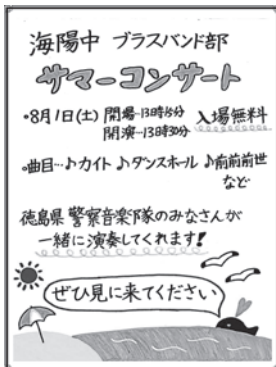 海陽中 ブラスバンド部
サマーコンサート
・8月1日(土) 開場…13時15分 入場無料
開演…13時30分
・曲目…♪カイト ♪ダンスホール ♪前前前世
など
徳島県警察音楽隊のみなさんが
一緒に演奏してくれます!
ぜひ見に来てください